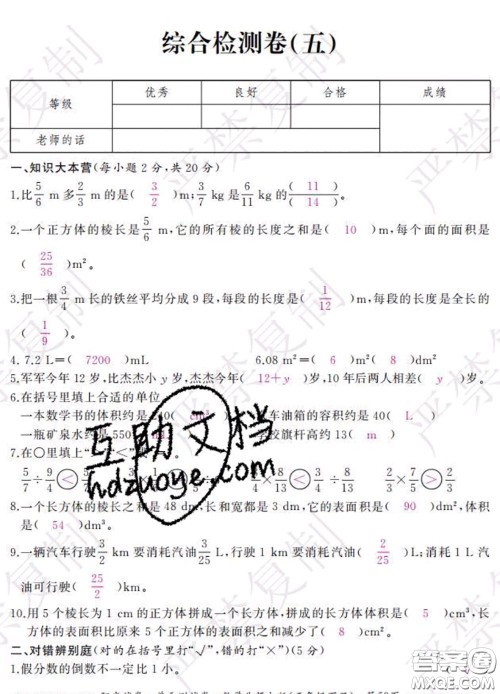 综合检测卷(五)
等级 优秀 良好 合格 成绩
老师的话
一、知识大本营(每小题2分,共20分)
1.比5/6 m多2/3 m的是( 3/2 )m;3/7 kg是6/11 kg的( 11 )/( 14 )。
2.一个正方体的棱长是5/6 m,它的所有棱的长度之和是( 10 )m,每个面的面积是
( 25/36 )m²。
3.把一根3/4 m长的铁丝平均分成9段,每段的长度是( 1/12 )m,每段的长度是全长的
( 1/9 )。
4. 7.2 L=( 7200 )mL 6.08 m²=( 6 )m²( 8 )dm²
5.军军今年12岁,比杰杰小y岁,杰杰今年( 12+y )岁,10年后两人相差( y )岁。
6.在括号里填上合适的单位
一本数学书的体积约是240( cm³ ) 车油箱的容积约是40( L )
一瓶矿泉水约是550 学校旗杆高约13( m )
7.在○里填上
5/7÷9/5<5/ 8/13÷4/9>4/9×8/13 2/7×5/3>2/7÷5/3
8.一个长方体的棱长之和是48 dm,长和宽都是3 dm,它的表面积是( 90 )dm²,体积
是( 54 )dm³。
9.一辆汽车行驶3/2 km要消耗汽油3/25 L,行驶1 km要消耗汽油( 2/25 )L;消耗1 L汽
油可行驶( 25/2 )km。
10.用5个棱长为1 cm的正方体拼成一个长方体,拼成的长方体体积是( 5 )cm³,长
方体的表面积比原来5个正方体的表面积之和减少了( 8 )cm²。
二、对错辨别庭(对的在括号里打“√”,错的打“×”)(5分)
1.假分数的倒数不一定比1小。
互助文档
hdzuoye.com
严禁复制
答案圈
MXQE.COM